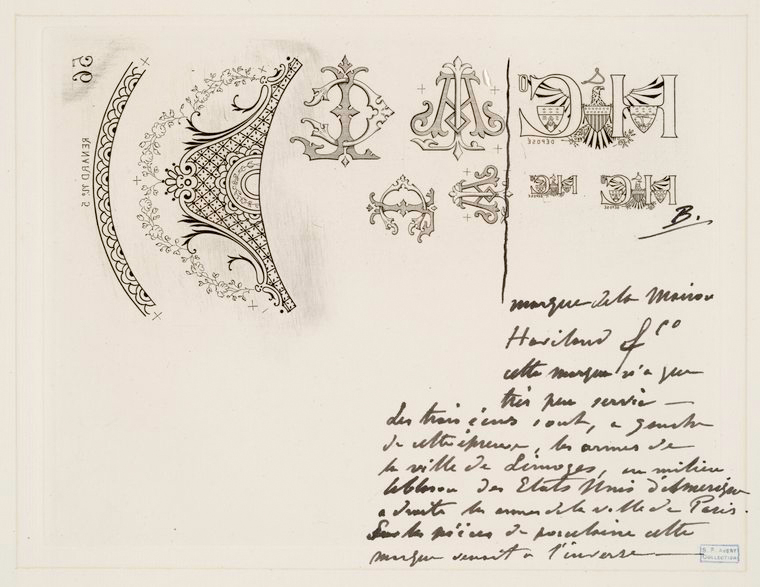 96
RENARD Nº 5
H & Cº
DÉPOSÉ
H & Cº
DÉPOSÉ
H & Cº
B.
marque de la Maison
Haviland & Co
cette marque n'a que
très peu servie —
Les trois écus sont, a gauche
de cette épreuve, les armes de
la ville de Limoges, au milieu
le blason des Etats Unis d'Amerique
a droite les armes de la ville de Paris.
Sur les pièces de porcelaine cette
marque venait a l'inverse —
S. P. AVERY
COLLECTION